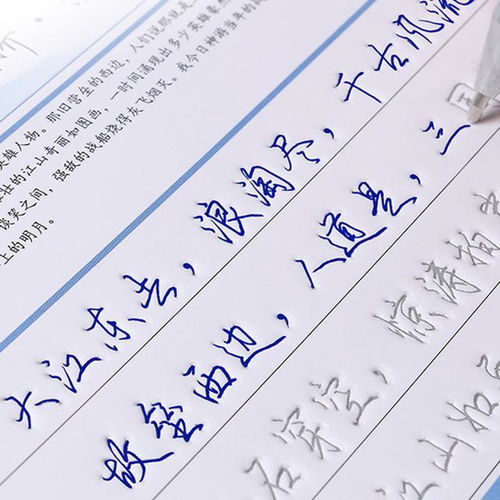 雄人物。那旧营垒的西边，人们说那就是
壮的江山奇丽如图画，一时间涌现出多少英雄豪
谈笑之间，强敌的战船烧得灰飞烟灭。我今日神游当年的
上的明月。
大江东去，浪淘尽，千古风流
故垒西边，人道是，三国
石穿空，惊涛拍
江山如